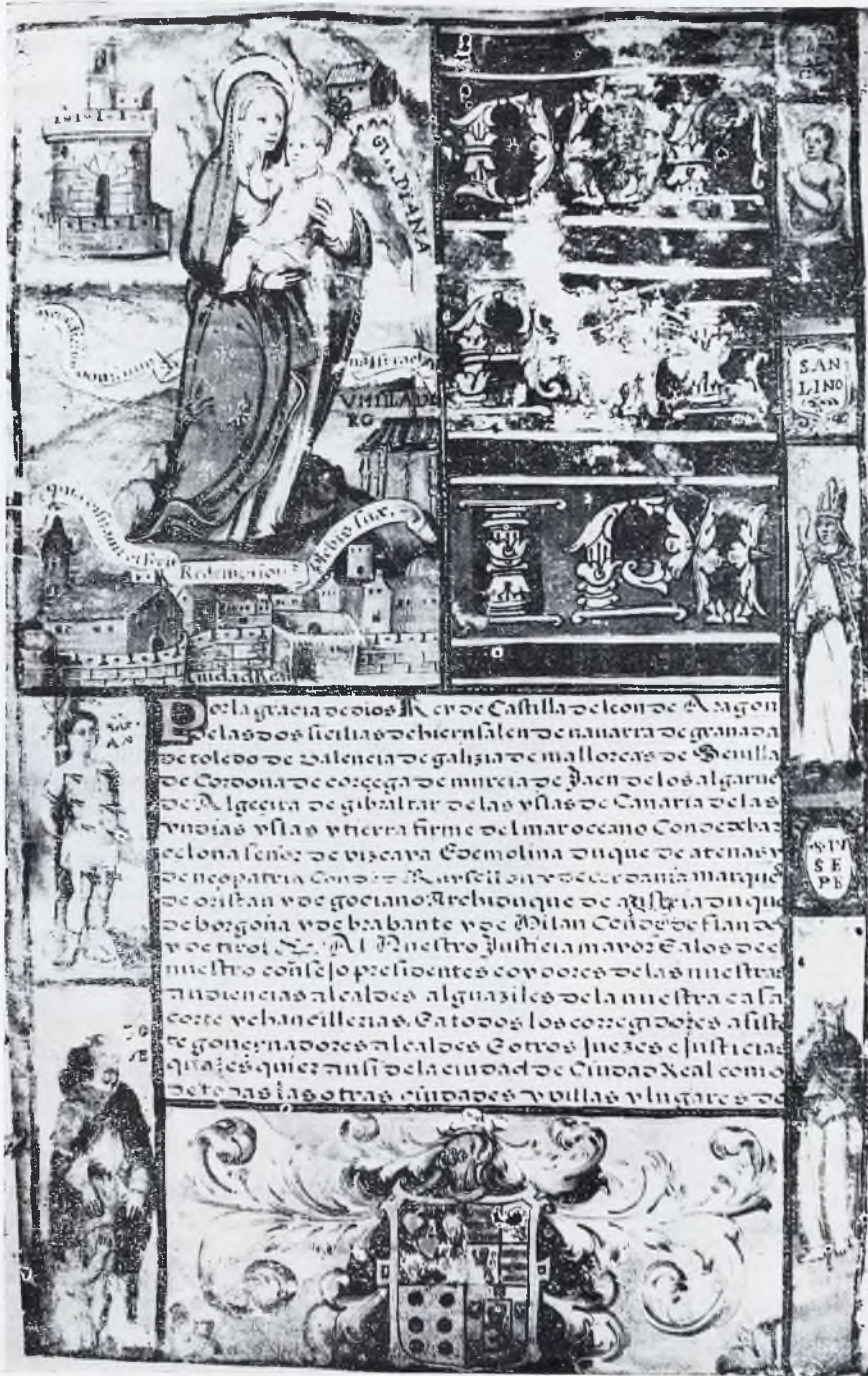 GVADIANA
VMILLADE
RO
Redemptionē plebis suæ.
Ciudad Real
DON
FELI
PE
SAN
LINO
IO
SE
Por la gracia de dios Rey de Castilla de leon de Aragon
de las dos sicilias de hierusalen de nauarra de granada
de toledo de valencia de galizia de mallorcas de Seuilla
de Cordoua de corçega de murcia de Jaen de los algarue
de Algecira de gibraltar de las yslas de Canaria de las
yndias yslas y tierra firme del mar oceano Conde de bar
celona señor de vizcaya E de molina duque de atenas y
de neopatria Conde Ruysellon y de Cerdania marque
de oristan y de gociano Archiduque de austria duque
de borgoña y de brabante y de Milan Conde de flandes
y de tirol &c. Al Nuestro Justicia mayor E a los de el
nuestro consejo presidentes e oydores de las nuestras
audiencias alcaldes alguaziles de la nuestra casa
corte y chancillerias. E a todos los corregidores asiste
te gouernadores alcaldes E otros Juezes e Justicias
quales quier ansi de la ciudad de Ciudad Real como
de todas las otras ciudades y villas y lugares de